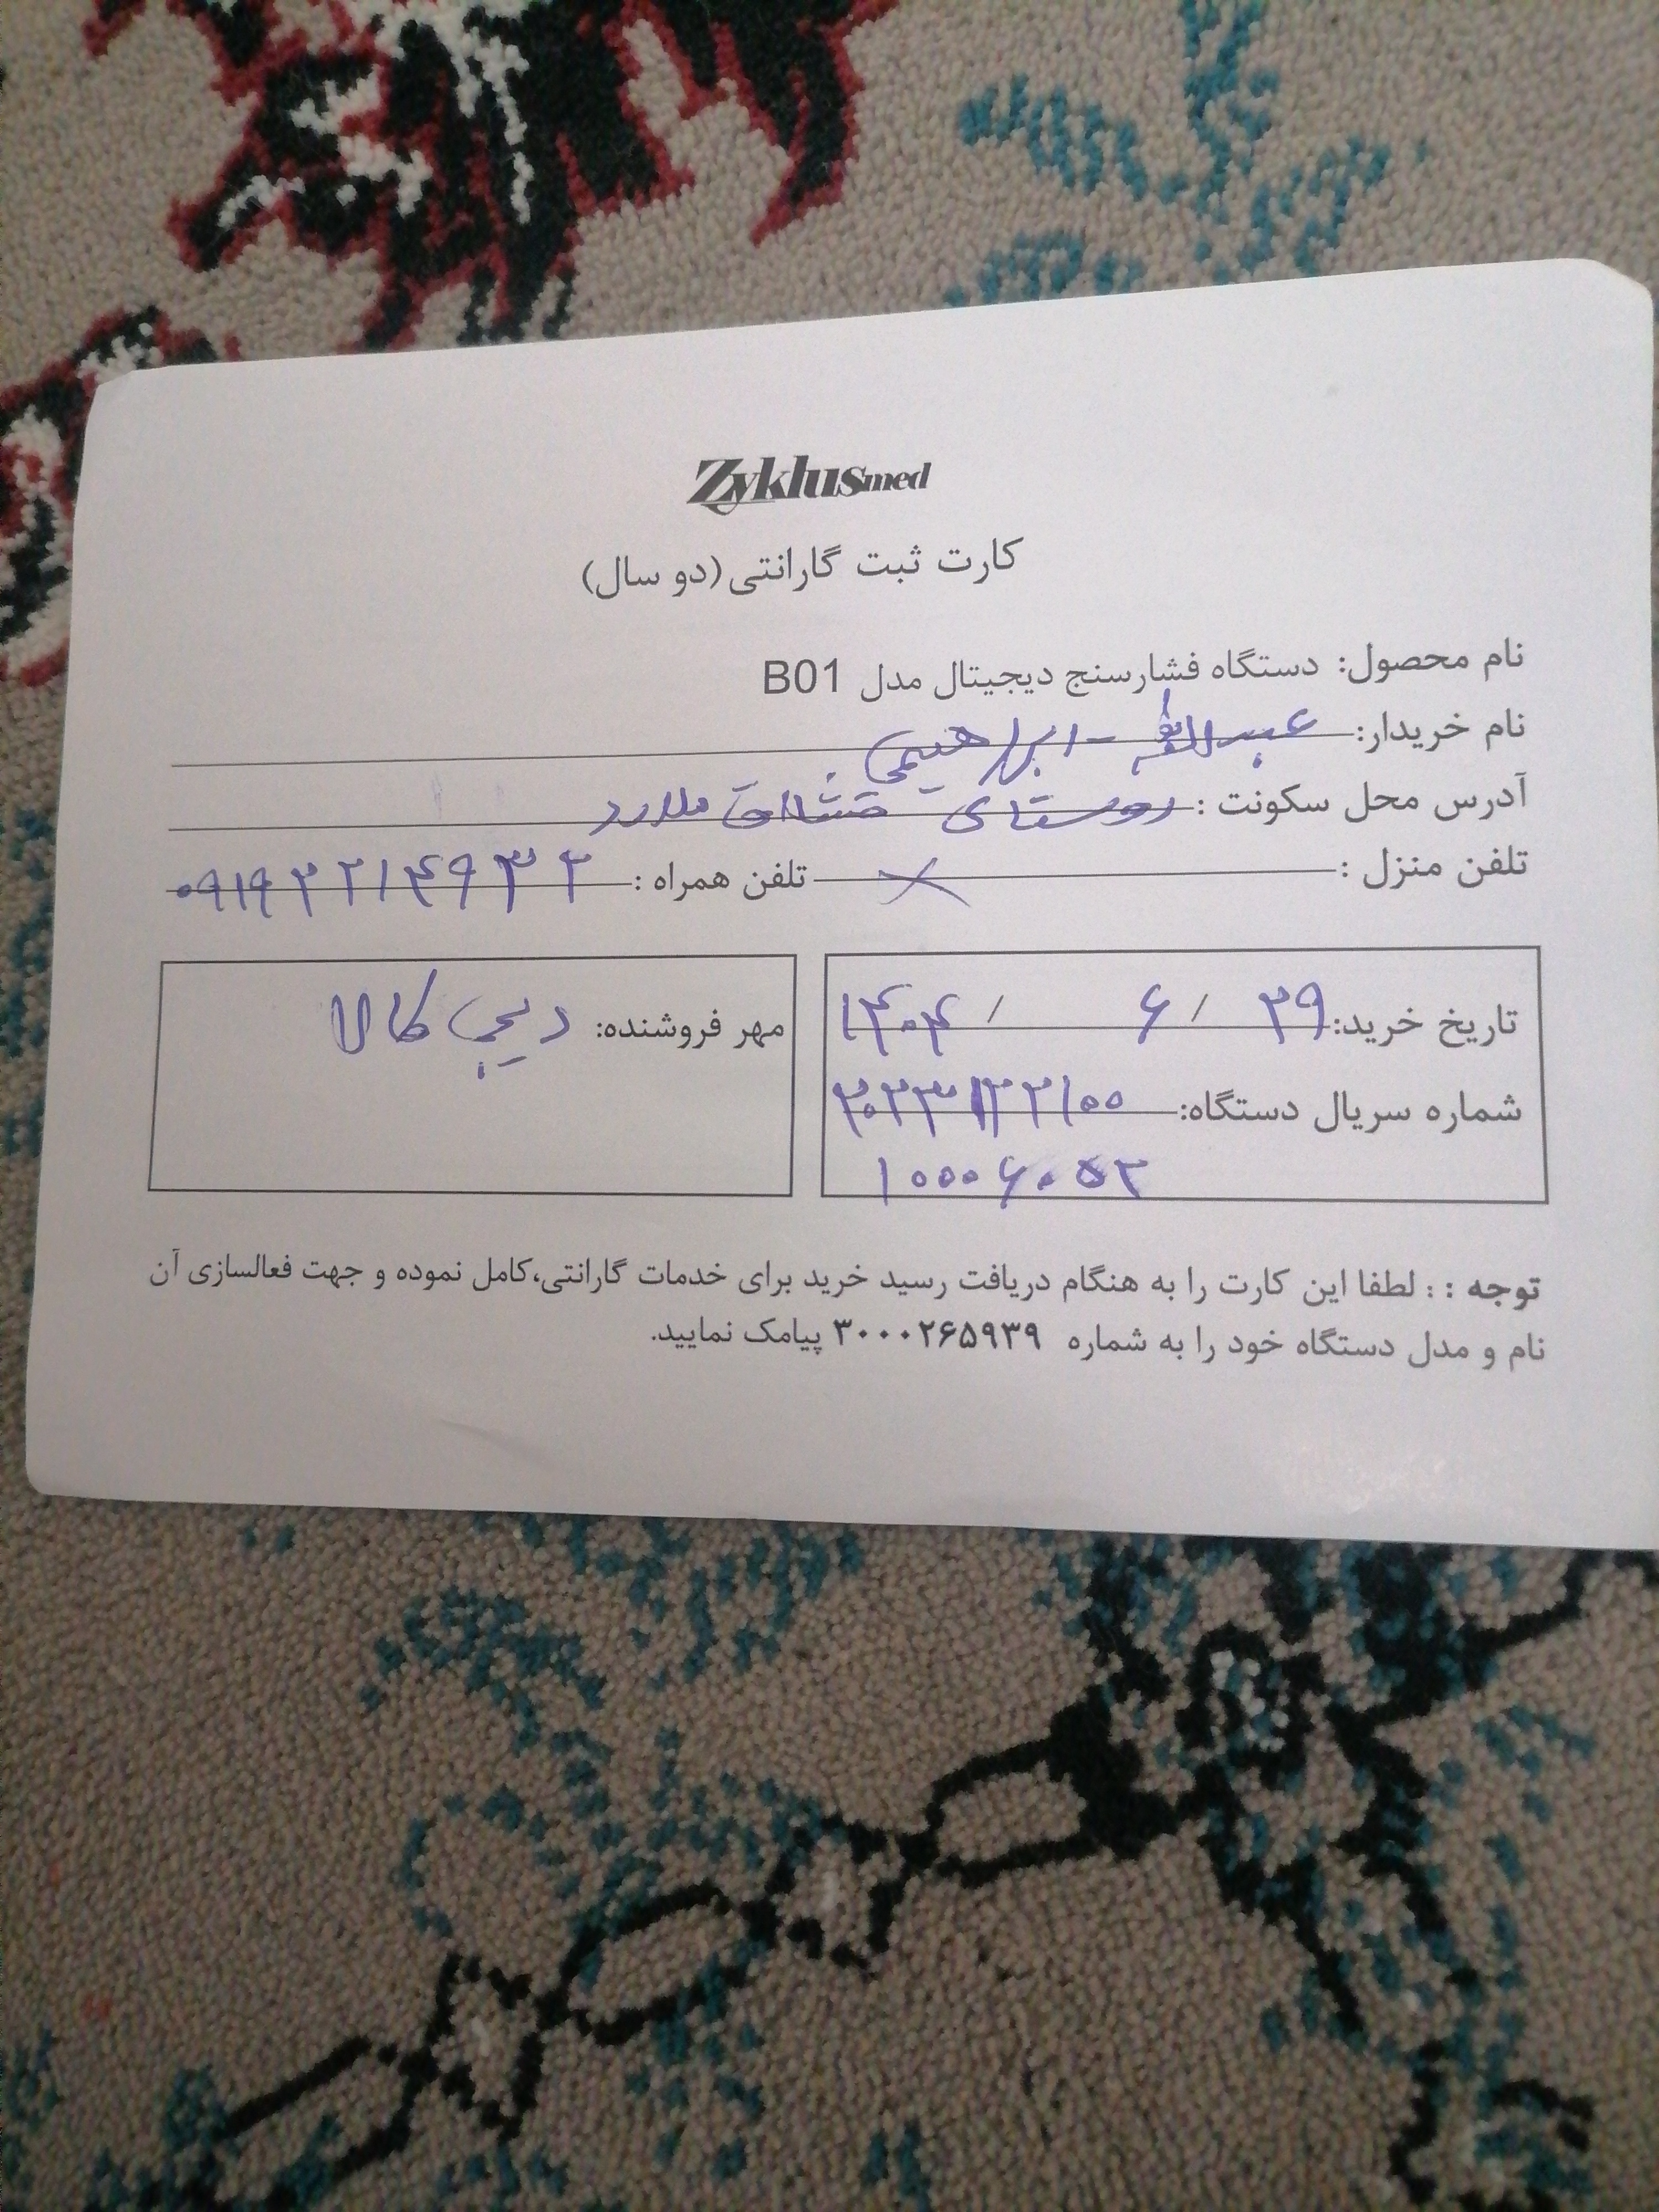 Zyklusmed
کارت ثبت گارانتی (دو سال)
نام محصول: دستگاه فشارسنج دیجیتال مدل B01
نام خریدار: ابراهیمی
آدرس محل سکونت: روستای قشلاق ملارد
تلفن منزل : × تلفن همراه : ۰۹۱۹۳۲۱۴۹۳۲
تاریخ خرید: ۲۹ / ۶ / ۱۴۰۴
مهر فروشنده: دیجی کالا
شماره سریال دستگاه:
توجه : : لطفا این کارت را به هنگام دریافت رسید خرید برای خدمات گارانتی،کامل نموده و جهت فعالسازی آن
نام و مدل دستگاه خود را به شماره ۳۰۰۰۲۶۵۹۳۹ پیامک نمایید.